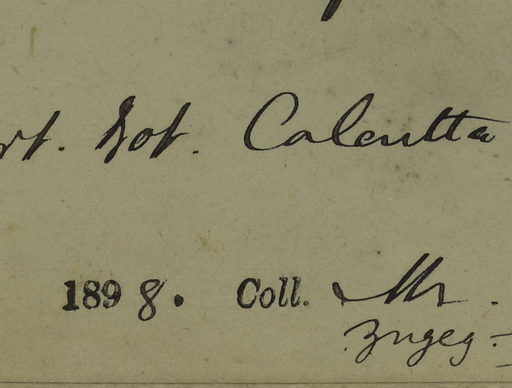 rt. Bot. Calcutta
1898. Coll. Mr.
zugeg.